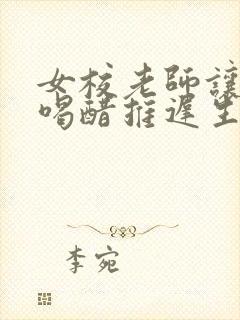 女校老師讓
喝醋推遲生
李宛